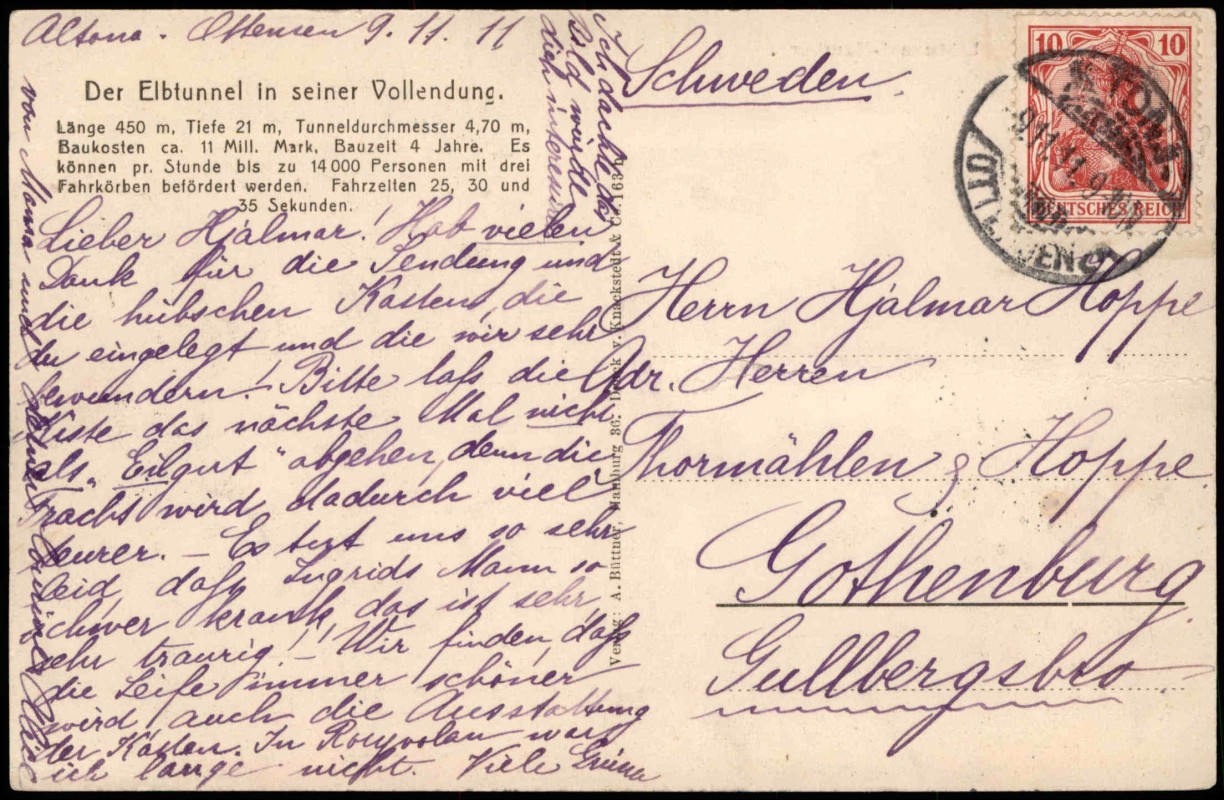 Altona-Ottensen 9.11.11
Der Elbtunnel in seiner Vollendung.
Länge 450 m, Tiefe 21 m, Tunneldurchmesser 4,70 m,
Baukosten ca. 11 Mill. Mark, Bauzeit 4 Jahre. Es
können pr. Stunde bis zu 14000 Personen mit drei
Fahrkörben befördert werden. Fahrzeiten 25, 30 und
35 Sekunden.
Lieber Hjalmar! Hab vielen
Dank für die Sendung und
die hübschen Kasten, die
du eingelegt und die wir sehr
bewundern! Bitte laß die
Kiste das nächste Mal nicht
als „Eilgut" abgehen, denn die
Fracht wird dadurch viel
teurer. – Es tut uns so sehr
leid, daß Ingrids Mann so
schwer krank, das ist sehr,
sehr traurig! – Wir finden, daß
die Seife immer schöner
wird, auch die Ausstattung
der Kasten. In war
ich lange nicht. Viele Grüße
von Mama und deiner
Ich dachte das
Bild würde
dich interessieren
Verlag: A. Büttner, Hamburg 36. Druck v. Knackstedt & Co. 163
Schweden.
10 10
DEUTSCHES REICH
ALTONA
9.11.11.
OTTENSEN
Herrn Hjalmar Hoppe
Adr. Herren
Thormählen & Hoppe.
Gothenburg
Gullbergsbro